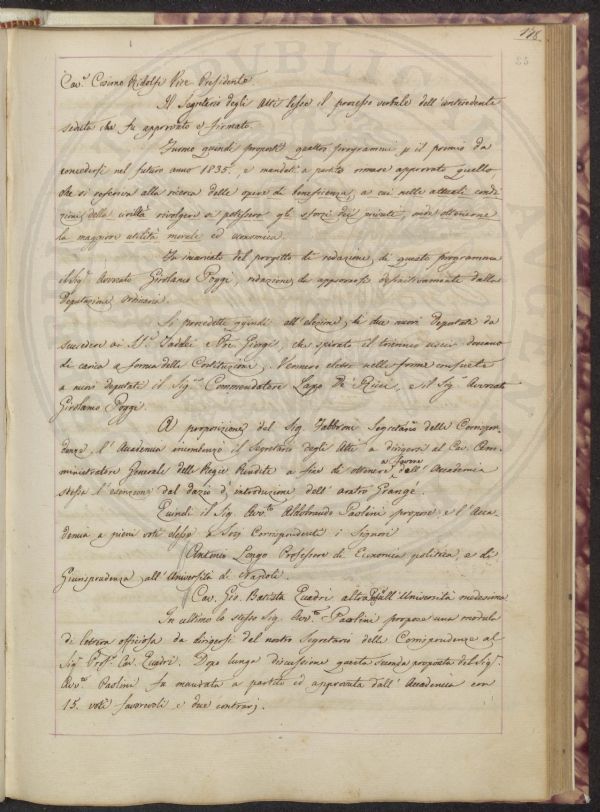 178.
Cav.e Cosimo Ridolfi Vice Presidente.
Il Segretario degli Atti lesse il processo verbale dell'antecedente
seduta che fu approvato e firmato.
Furono quindi proposti quattro programmi p il premio da
concedersi nel futuro anno 1835, e mandati a partito rimase approvato quello,
che si referiva alla ricerca delle opere di beneficenza, a cui nelle attuali condi
zioni della civiltà rivolgere si potessero gli sforzi dei privati, onde ottenerne
la maggiore utilità morale ed economica.
Fu incaricato del progetto di redazione di questo programma
il Sig.e Avvocato Girolamo Poggi, redazione da approvarsi definitivamente dalla
Deputazione ordinaria.
Si procedette quindi all'elezione di due nuovi Deputati da
succedere ai SS.i Taddei e Del Greco, che spirato il triennio uscir dovevano
di carica a forma delle Costituzioni; Vennero eletti nelle forme consuete
a nuovi deputati il Sig.re Commendatore Lapo De' Ricci, e il Sig. Avvocato
Girolamo Poggi.
A proposizione del Sig. Fabbroni Segretario delle Corrispon-
denze, l'Accademia incombenzò il Segretario degli Atti a dirigersi al Cav. Am-
ministratore Generale delle Regie Rendite a fine di ottenere a favore dell'Accademia
stessa l'esenzione dal dazio d'introduzione dell'aratro Grangé.
Quindi il Sig. Avv.to Aldobrando Paolini propose, e l'Acca-
demia a pieni voti elesse a Socj Corrispondenti i Signori
Antonio Longo Professore di Economia politica, e di
Giurisprudenza all'Università di Napoli.
Cav. Gio. Batista Quadri altro Prof. all'Università medesima
In ultimo lo stesso Sig. Avv.to Paolini propose una modula
di lettera officiosa da dirigersi dal nostro Segretario delle Corrispondenze al
Sig.e Prof.e Cav. Quadri. Dopo lunga discussione questa seconda proposta del Sig.e
Avv.to Paolini fu mandata a partito ed approvata dall'Accademia con
15. voti favorevoli e due contrarj.